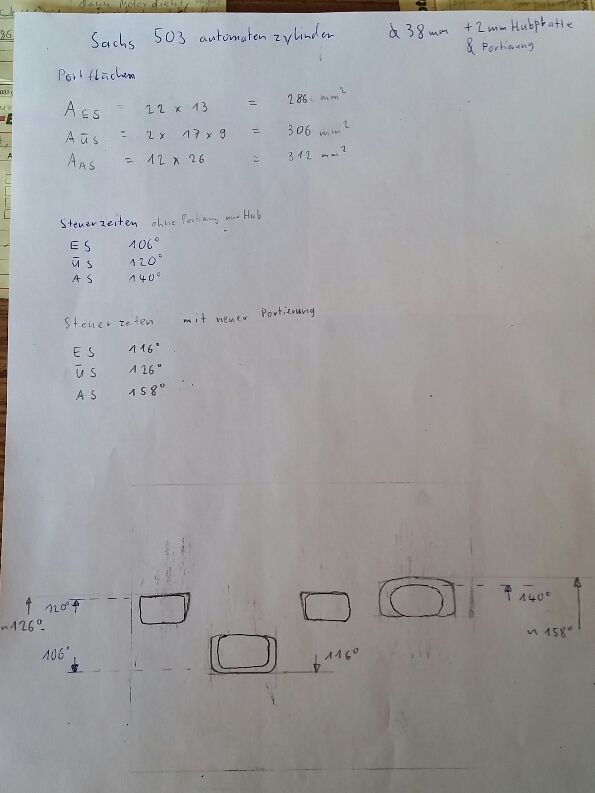 Sachs 503 automatenzylinder à 38mm +2mm Hubplatte
& Portierung
Portflächen
A ES = 22 x 13 = 286 mm²
A ÜS = 2 x 17 x 9 = 306 mm²
A AS = 12 x 26 = 312 mm²
Steuerzeiten ohne Portierung nur Hub
ES 106°
ÜS 120°
AS 140°
Steuerzeiten mit neuer Portierung
ES 116°
ÜS 126°
AS 158°
120°
140°
~126°
~158°
106°
116°